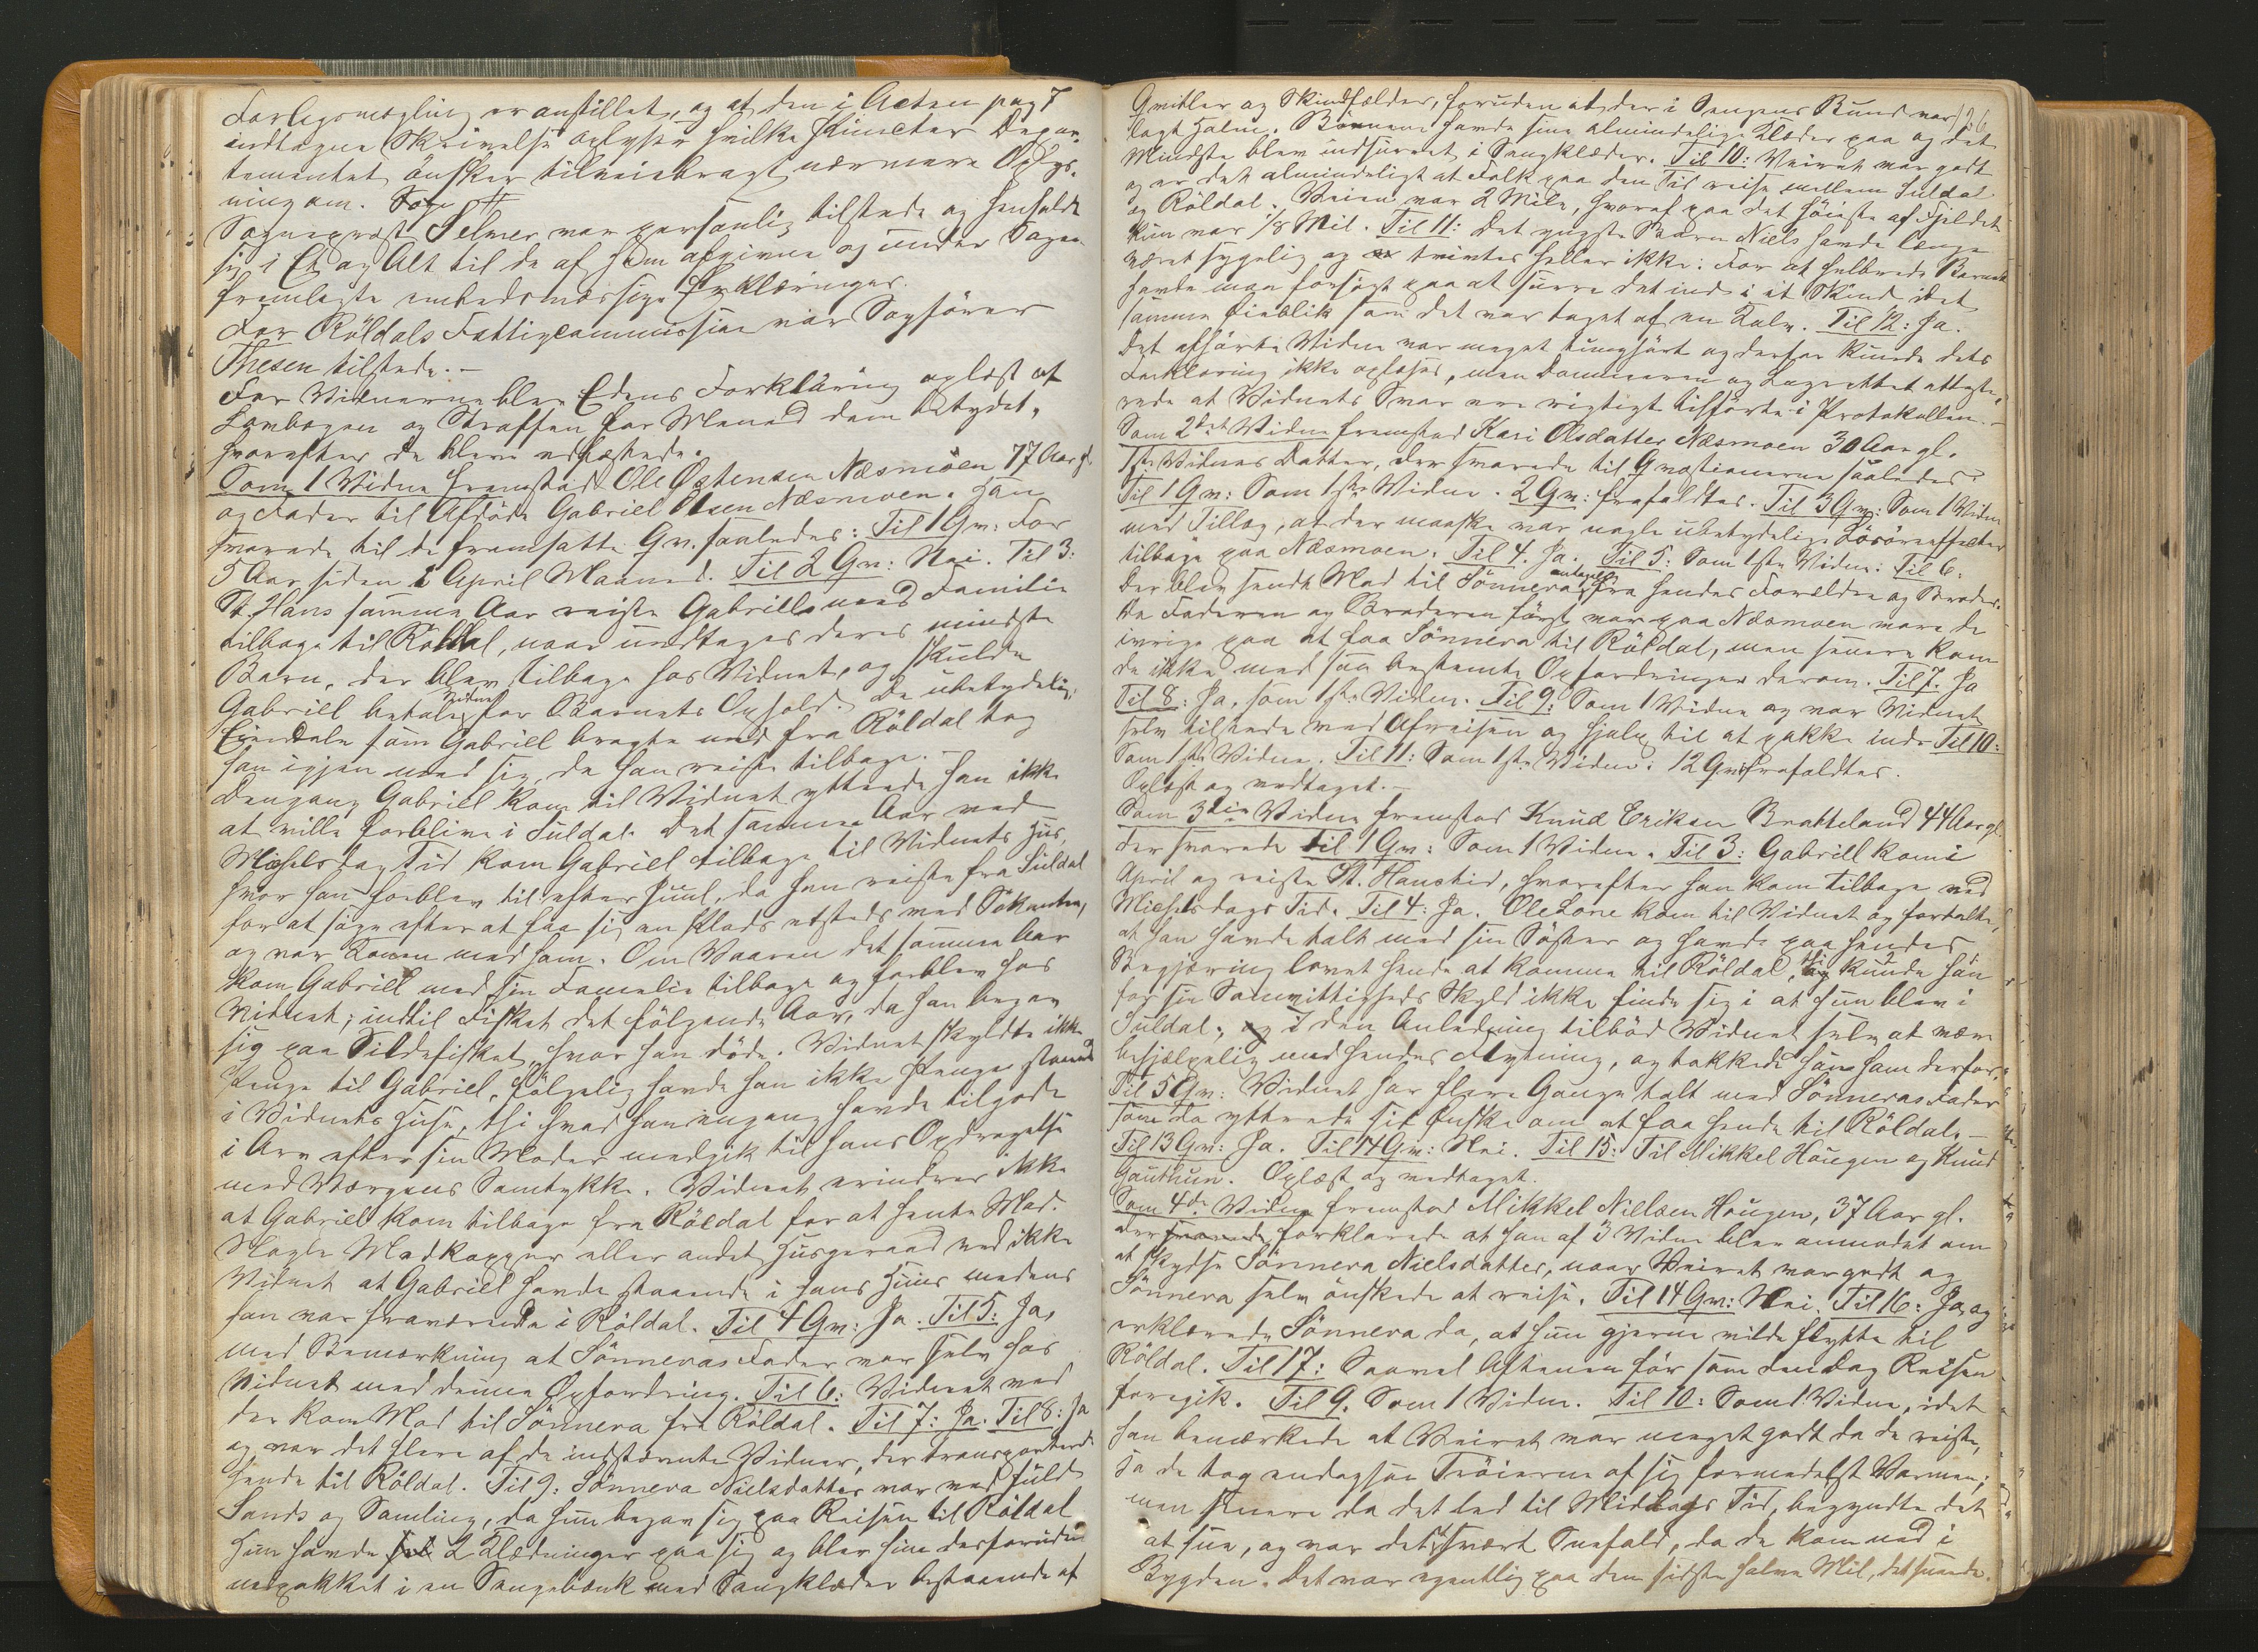 Forligsmægling er anstillet, og at den i Acten pag 7
indtagne Skrivelse oplyser hvilke Puncter Depar-
tementet ønsker tilveiebragt nærmere Oplys-
ning om.
Sognepræst Selmer var personlig tilstede og henholdt
sig i Et og Alt til de af ham afgivne og under Sagen
fremlagte embedsmæssige Erklæringer.
For Röldals Fattigcommission var Sagfører
Thesen tilstede. –
For Vidnerne blev Edens Forklaring oplæst af
Lovbogen og Straffen for Meneed dem betydet,
hvorefter de bleve edfæstede.
Som 1 Vidne fremstod Ole Østensen Næsmoen 77 Aar gl.
og Fader til Afdøde Gabriel Olsen Næsmoen. Han
svarede til de fremsatte Qv. saaledes: Til 1 Qv: For
5 Aar siden i April Maaned. Til 2 Qv: Nei. Til 3:
St. Hans samme Aar reiste Gabriell med Familie
tilbage til Röldal, naar undtages deres mindste
Barn, der blev tilbage hos Vidnet, og skulde
Gabriell betale Vidnet for Barnets Ophold. De ubetydelige
Eiendele som Gabriell bragte med fra Röldal tog
han igjen med sig, da han reiste tilbage.
Dengang Gabriell kom til Vidnet yttrede han ikke
at ville forblive i Suldal. Det samme Aar ved
Michelsdag Tid kom Gabriel tilbage til Vidnets Hus,
hvor han forblev til efter Juul, da han reiste fra Suldal
for at søge efter at faa sig en Plads etsteds ved Søkanten,
og var Konen med ham. Om Vaaren det samme Aar
kom Gabriell med sin Familie tilbage og forblev hos
Vidnet, indtil Fisket det følgende Aar, da han begav
sig paa Sildefisket, hvor han døde. Vidnet skyldte ikke
Penge til Gabriel, følgelig havde han ikke Penge staaende
i Vidnets Huse, thi hvad han engang havde tilgode
i Arv efter sin Moder medgik til hans Opdragelse
med Værgens Samtykke. Vidnet erindrer ikke
at Gabriell kom tilbage fra Röldal for at hente Mad.
Nogle Madkopper eller andet Husgeraad ved ikke
Vidnet at Gabriell havde staaende i hans Huus medens
han var fraværende i Röldal. Til 4 Qv: Ja. Til 5: Ja,
med Bemærkning at Sønneves Fader var selv hos
Vidnet med denne Opfordring. Til 6: Vidnet ved
der kom Mad til Sønneva fra Röldal. Til 7: Ja. Til 8: Ja
og var det flere af de indstævnte Vidner, der transporterede
hende til Röldal. Til 9: Sønneva Nielsdatter var ved fuld
Sands og Samling, da hun begav sig paa Reisen til Röldal
Hun havde 2 Klædninger paa sig og blev hun desforuden
nedpakket i en Sengebænk med Sengklæder bestaaende af
126
Qvitler og Skindfælder, foruden at der i Sengens Bund var
lagt Halm. Børnene havde sine almindelige Klæder paa og det
Mindste blev indsurret i Sengklæder. Til 10: Veiret var godt
og er det almindeligt at Folk paa den Tid reise mellem Suldal
og Röldal. Veien var 2 Mile, hvoraf paa det høieste af Fjeldet
kun var 1/8 Mil. Til 11: Det yngste Barn Niels havde længe
været sygelig og trivtes heller ikke. For at helbrede Barnet
havde man forsøgt paa at surre det ind i et Skind idet
samme Øieblik som det var taget af en Kalv. Til 12: Ja.
Det afhørte Vidne var meget tunghørt og derfor kunde dets
Forklaring ikke oplæses, men Dommeren og Lagrettet atteste-
rede at Vidnets Svar ere rigtigt tilførte i Protokollen. –
Som 2det Vidne fremstod Kari Olsdatter Næsmoen 30 Aar gl.
1ste Vidnes Datter, der svarede til Qvæstionerne saaledes:
Til 1 Qv: Som 1ste Vidne. 2 Qv: frafaldtes. Til 3 Qv: Som 1 Vidne
med Tillæg, at der maaske var nogle ubetydelige Løsøreeffecter
tilbage paa Næsmoen. Til 4. Ja. Til 5: Som 1ste Vidne. Til 6:
Der blev sendt Mad til Sønneva fra hendes Forældre og Broder.
Da Faderen og Broderen først var paa Næsmoen vare de
ivrige paa at faa Sønneva til Röldal, men senere kom
de ikke med saa bestemte Opfordringer derom. Til 7. Ja
Til 8: Ja, som 1ste Vidne. Til 9: Som 1 Vidne og var Vidnet
selv tilstede ved Afreisen og hjalp til at pakke ind. Til 10:
Som 1ste Vidne. Til 11: Som 1ste Vidne. 12 Qv: frafaldtes.
Oplæst og vedtaget. –
Som 3die Vidne fremstod Knud Eriksen Bratteland 44 Aar gl.
der svarede Til 1 Qv: Som 1 Vidne. Til 3: Gabriell kom i
April og reiste St. Hanstid, hvorefter han kom tilbage ved
Michelsdags Tid. Til 4: Ja. Ole Lone kom til Vidnet og fortalte,
at han havde talt med sin Søster og havde paa hendes
Begjæring lovet hende at komme til Röldal, thi kunde han
for sin Samvittigheds Skyld ikke finde sig i at hun blev i
Suldal. I den Anledning tilbød Vidnet selv at være
behjælpelig med hendes Flytning, og takkede han ham derfor.
Til 5 Qv: Vidnet har flere Gange talt med Sønnevas Fader
som da yttrede sit Ønske om at faa hende til Röldal. –
Til 13 Qv: Ja. Til 14 Qv: Nei. Til 15: Til Mikkel Haugen og Knud
Gauthun. Oplæst og vedtaget.
Som 4de Vidne fremstod Mikkel Nielsen Haugen, 37 Aar gl.
der forklarede at han af 3 Vidne blev anmodet om
at skydse Sønneva Nielsdatter, naar Veiret var godt og
Sønneva selv ønskede at reise. Til 14 Qv: Nei. Til 16: Ja, og
erklærede Sønneva da, at hun gjerne vilde flytte til
Röldal. Til 17: Saavel Aftenen før som den Dag Reisen
foregik. Til 9. Som 1 Vidne. Til 10: Som 1 Vidne, idet
han bemærkede at Veiret var meget godt da de reiste,
saa de tog endogsaa Trøierne af sig formedelst Varmen;
men senere da det led til Middags Tid, begyndte det
at snee, og var det svært Snefald, da de kom ned i
Bygden. Det var egentlig paa den sidste halve Mil, det sneede.